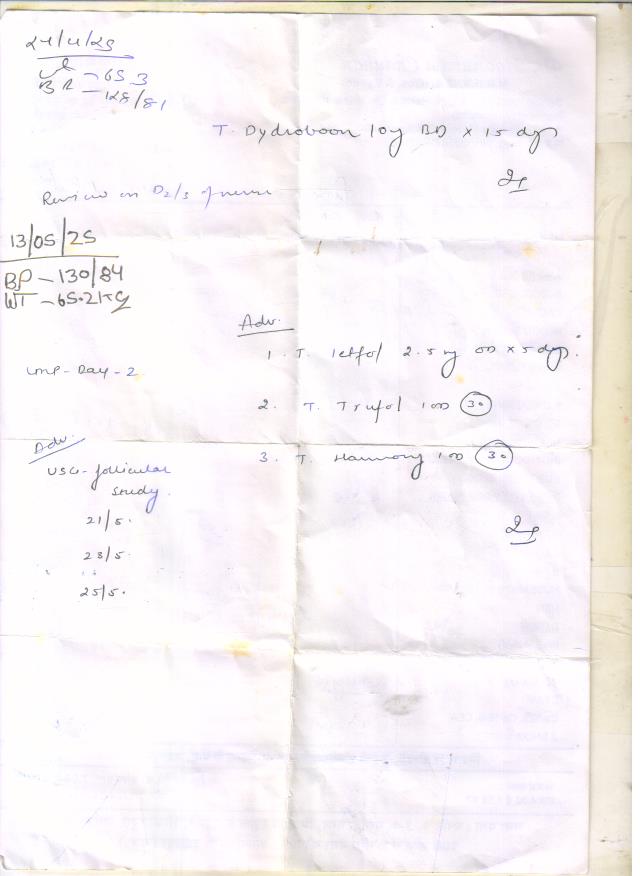 24/4/25
wt - 65.3
BP - 128/81
T. Dydroboon 10mg BD x 15 days
Review on D2/3 of menses
13/05/25
BP - 130/84
WT - 65.21kg
Adv.
1. T. letfol 2.5 mg OD x 5 days.
LMP - Day - 2
2. T. Trufol 1 OD 30
Adv.
3. T. Hannony 1 OD 30
USG - follicular
study.
21/5.
23/5.
25/5.